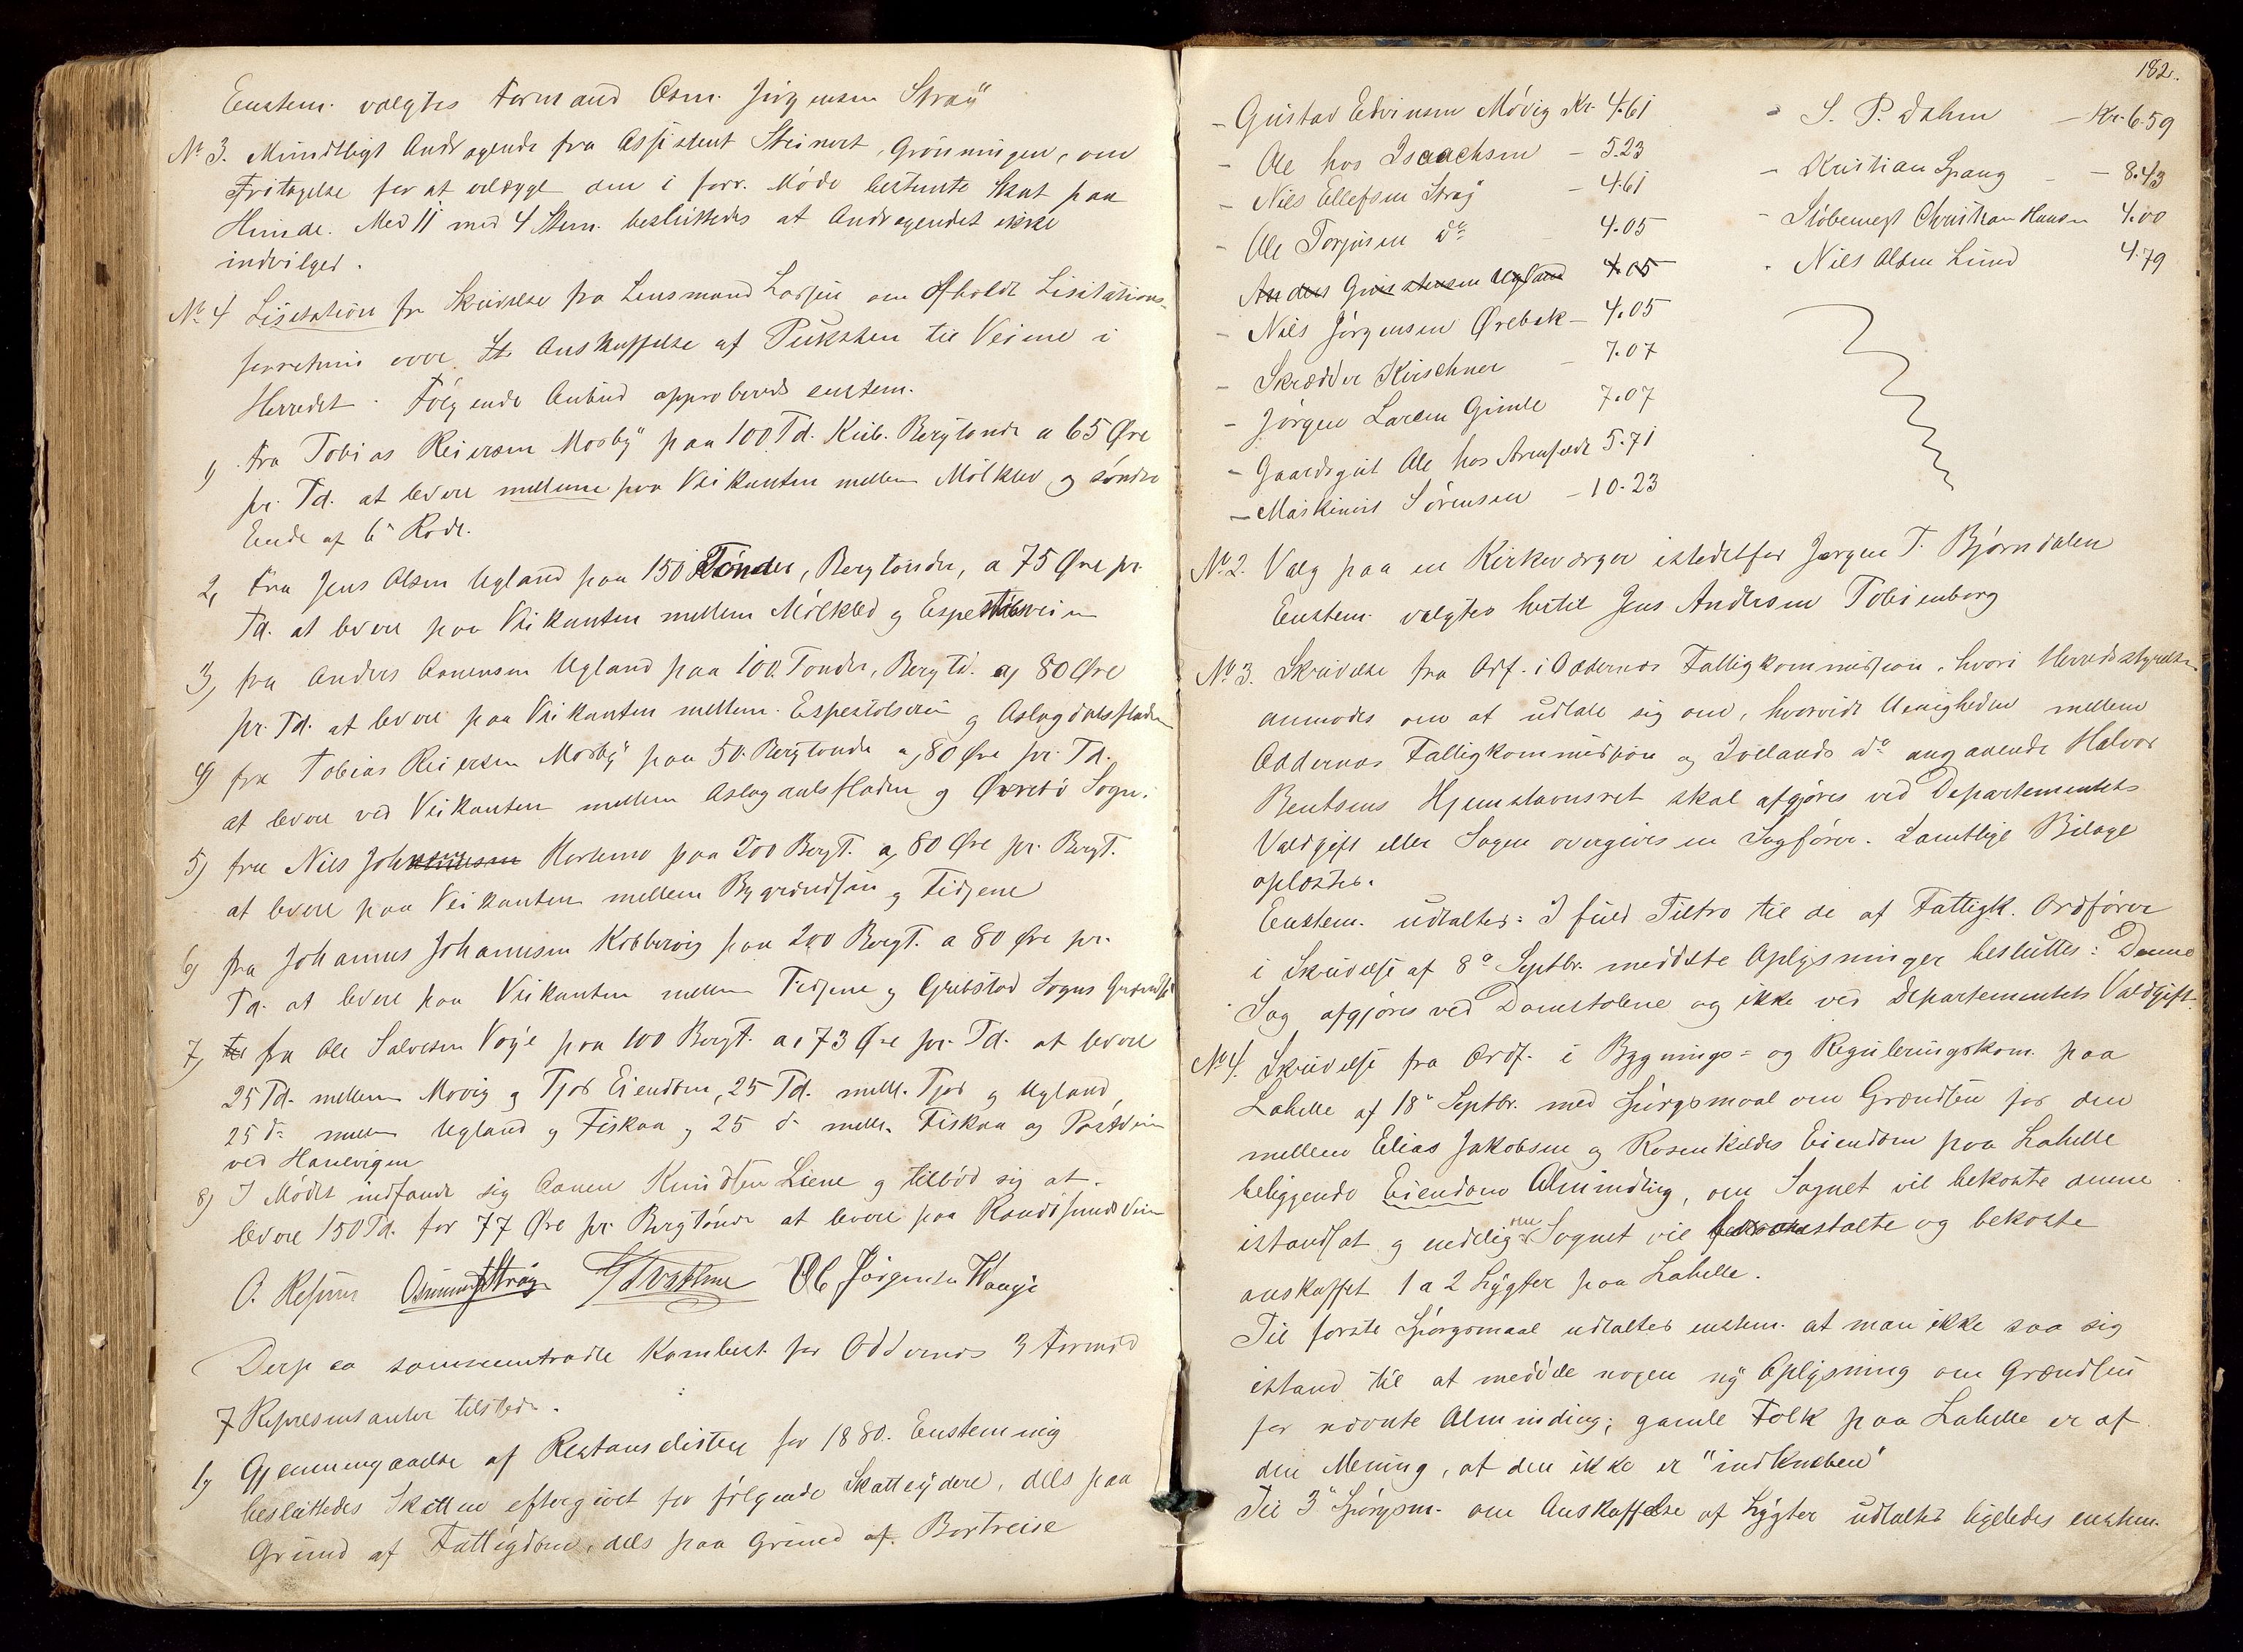 Enstem. valgtes Formand Osm. Jörgensen Straÿ
No 3. Mundtligt Andragende fra Assistent Steinert, Grönningen, om
Fritagelse for at erlægge den i forr. Möde bestemte Skat paa
Hunde. Med 11 mod 4 Stem. besluttedes at Andragendet ikke
indvilges.
No 4 Lisitation fr Skrivelse fra Lensmand Larsen om afholdt Lisitations-
forretning over Anskaffelse af Pukksten til Veiene i
Herredet. Fölgende Anbud approberedes enstem.
1) fra Tobias Reiersen Mosbÿ paa 100 Td. Kul. Bergtønde a 65 Øre
pr. Td. at levere mellem paa Veikanten mellem Mölklev og söndre
Ende af 6te Rode.
2, Fra Jens Olsen Ugland paa 150 Tönder, Bergtönder, a 75 Øre pr.
Td. at levere paa Veikanten mellem Mölklev og Espestölsveien
3, fra Anders Aanensen Ugland paa 100 Tönder, Bergtd. a, 80 Øre
pr. Td. at levere paa Veikanten mellem Espestölsveien og Aslagdalsfladen
4) fra Tobias Reiersen Mosbÿ paa 50 Bergtönder a, 80 Øre pr. Td.
at levere ved Veikanten mellem Aslagdalsfladen og Øvrebö Sogn.
5) fra Niels Johnsen Hortemo paa 200 Bergt. a, 80 Øre pr. Bergt.
at levere paa Veikanten mellem Bygrændsen og Tidjene
6) fra Johannes Johannesen Kobbervig paa 200 Bergt. a 80 Øre pr.
Td. at levere paa Veikanten mellem Tidjene og Grebstad Sogns Grændse
7, fra Ole Salvesen Vöÿe paa 100 Bergt. a, 73 Øre pr. Td. at levere
25 Td. mellem Movig og Tjos Eiendom, 25 Td. mell. Tjos og Ugland,
25 do mellem Ugland og Fiskaa, 25 do mell. Fiskaa og Postveien
ved Hanevigen
8) I Mödet indfandt sig Aanen Knudsen Liene og tilböd sig at
levere 150 Td. for 77 Øre pr. Bergtönde at levere paa Randösundsveien
O. Osmund Straÿ Ole Jörgensen Kaaÿe
Derpaa sammentraadte Kombest. for Oddernes 3 Formænd
7 Repræsentanter tilstede.
1) Gjennemgaaelse af Restanselisten for 1880. Enstemmig
besluttedes Skatten eftergivet for fölgende Skatteÿdere, dels paa
Grund af Fattigdom, dels paa Grund af Bortreise
182.
- Gustav Edvinsen Mövig Kr. 4.61
- Ole hos Isaachsen - 5.23
- Niels Ellefsen Straÿ - 4.61
- Ole Torjusen do - 4.05
Anders Ugland 4.05
- Niels Jörgensen Ørebæk - 4.05
- Skrædder Kirschner - 7.07
- Jörgen Larsen Gimle 7.07
- Gaardsgut Ole hos Arenfeldt 5.71
- Maskinist Sörensen - 10.23
- S. P. Dahm - Kr. 6.59
- Kristian Spang - - 8.43
- Stöbemest Christian Hansen 4.00
- Niels Olsen Lund 4.79
No 2. Valg paa en Kirkeværge istedetfor Jörgen T. Bjørndalen
Enstem. valgtes hertil Jens Andersen Tobienborg
No 3. Skrivelse fra Orf. i Oddernes Fattigkommission, hvori Herredsstyrelsen
anmodes om at udtale sig om, hvorvidt Uenigheden mellem
Oddernes Fattigkommission og Ivelands do angaaende Halvor
Bentsens Hjemstavnsret skal afgjöres ved Departementets
Voldgift eller Sagen overgives en Sagförer. Samtlige Bilage
oplæstes.
Enstem. udtaltes: I fuld Tiltro til de af Fattigk. Ordförer
i Skrivelse af 8de Septbr. meddelte Oplysninger besluttes: Denne
Sag afgjöres ved Domstolene og ikke ved Departementets Voldgift.
No 4. Skrivelse fra Ordf. i Bygnings- og Reguleringskom. paa
Lahelle af 18de Septbr. med Spörgsmaal om Grændsen for den
mellem Elias Jakobsen og Rosenkildes Eiendom paa Lahelle
beliggende Eiendom Alminding, om Sognet vil bekoste denne
istandsat og endelig om Sognet vil foranstalte og bekoste
anskaffet 1 a 2 Lygter paa Lahelle.
Til første Spörgsmaal udtaltes enstem. at man ikke saa sig
istand til at meddele nogen nÿ Oplysning om Grændsen
for nævnte Alminding; gamle Folk paa Lahelle er af
den Mening, at den ikke er "indkneben"
Til 3de Spörgsm. om Anskaffelse af Lygter udtaltes ligeledes enstem.